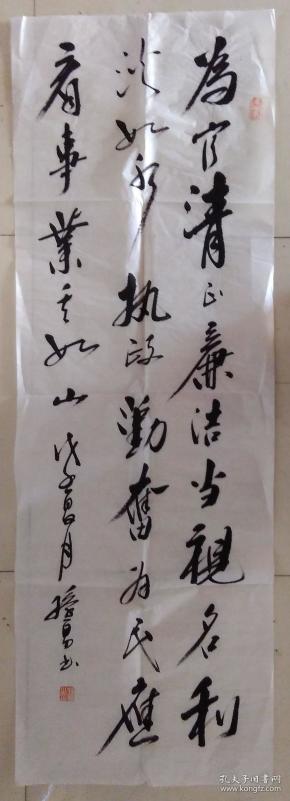 為官清正廉洁当視名利
淡如水執政勤奮为民應
看事業重如山戊子昌月 昌书
孔夫子旧书网
www.kongfz.com